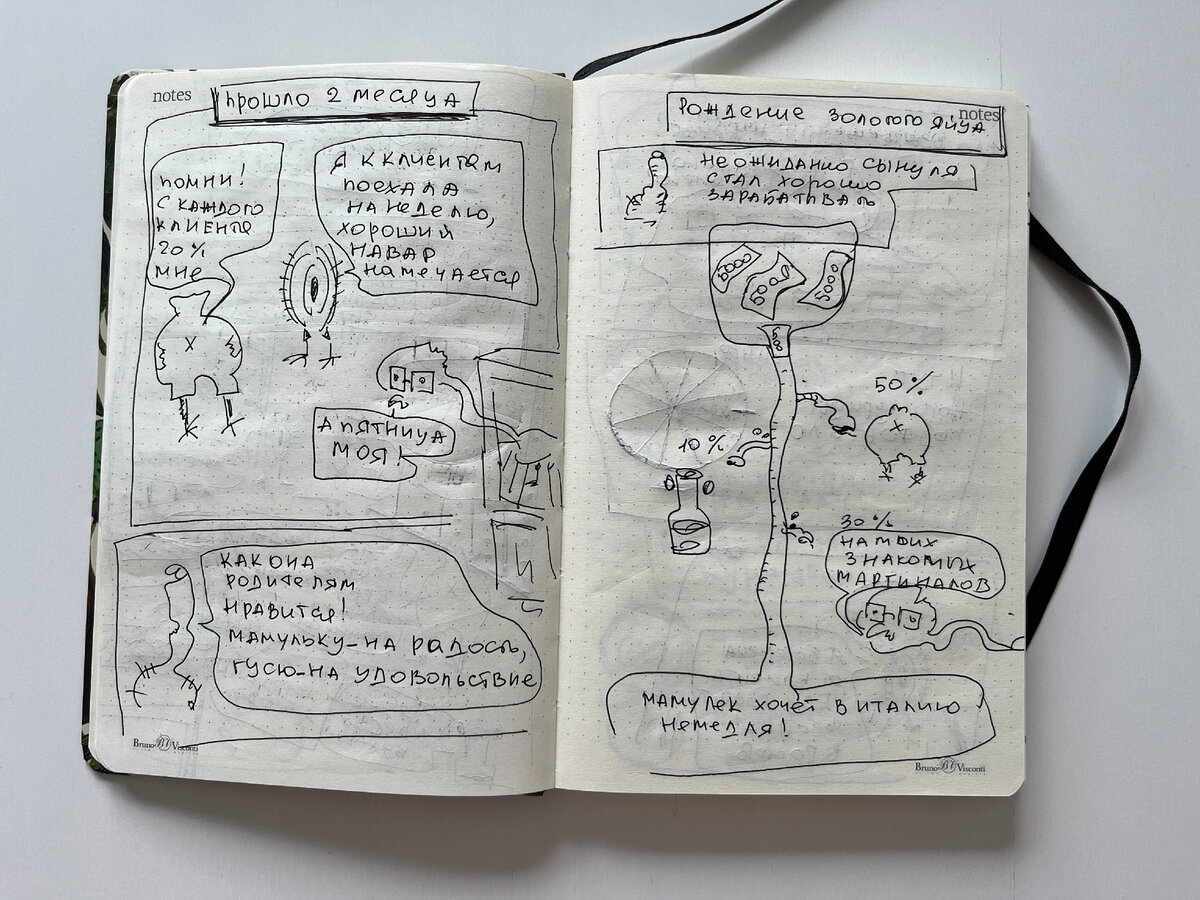 notes
прошло 2 месяца
помни!
с каждого
клиента
20%
мне
я к клиентам
поехала
на неделю,
хороший
навар
намечается
а пятница
моя!
как она
родителям
нравится!
мамульку-на радость,
гусю-на удовольствие
Bruno BV Visconti
notes
Рождение золотого яйца
неожиданно сынуля
стал хорошо
зарабатывать
5000
5000
5000
500
50%
10%
30%
на моих
знакомых
маргиналов
мамулек хочет в италию
немедля!
Bruno BV Visconti